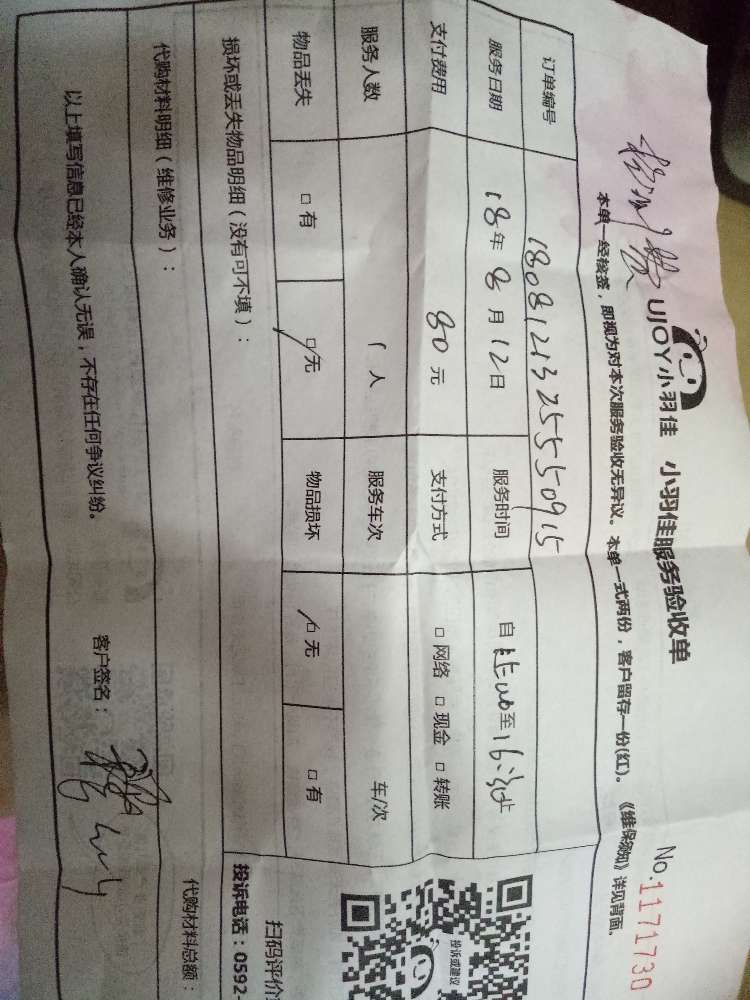 UJOY小羽佳 小羽佳服务验收单
No.1171730
本单一经核签，即视为对本次服务验收无异议。本单一式两份，客户留存一份(红)。《维保须知》详见背面。
订单编号 18081213255550915
服务日期 18年8月12日 服务时间 自 至16:30止
支付费用 80元 支付方式 □网络 □现金 □转账
服务人数 1人 服务车次 车/次
物品丢失 □有 □无 物品损坏 □无 □有
损坏或丢失物品明细（没有可不填）：
代购材料明细（维修业务）： 代购材料总额：
以上填写信息已经本人确认无误，不存在任何争议纠纷。 客户签名：
投诉或建议
扫码评价
投诉电话：0592-